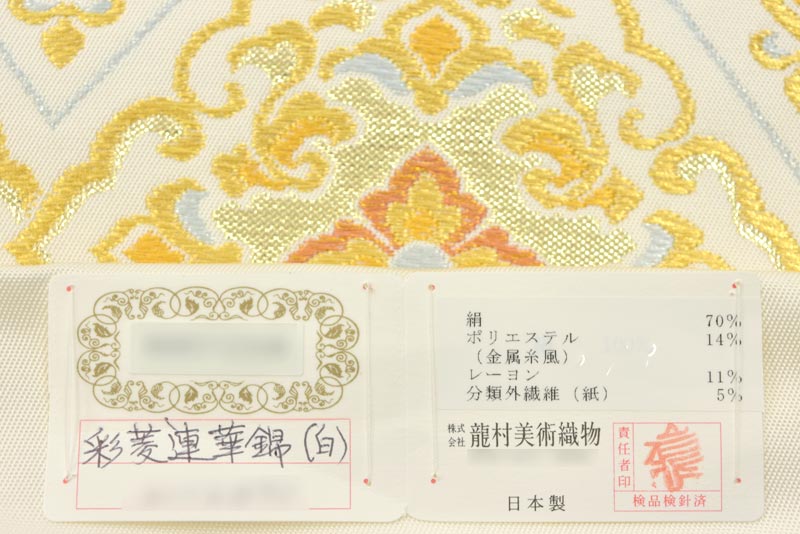 彩菱連華錦(白)
絹 70%
ポリエステル 14%
(金属糸風)
レーヨン 11%
分類外繊維(紙) 5%
株式会社 龍村美術織物
責任者印
検品検針済
日本製